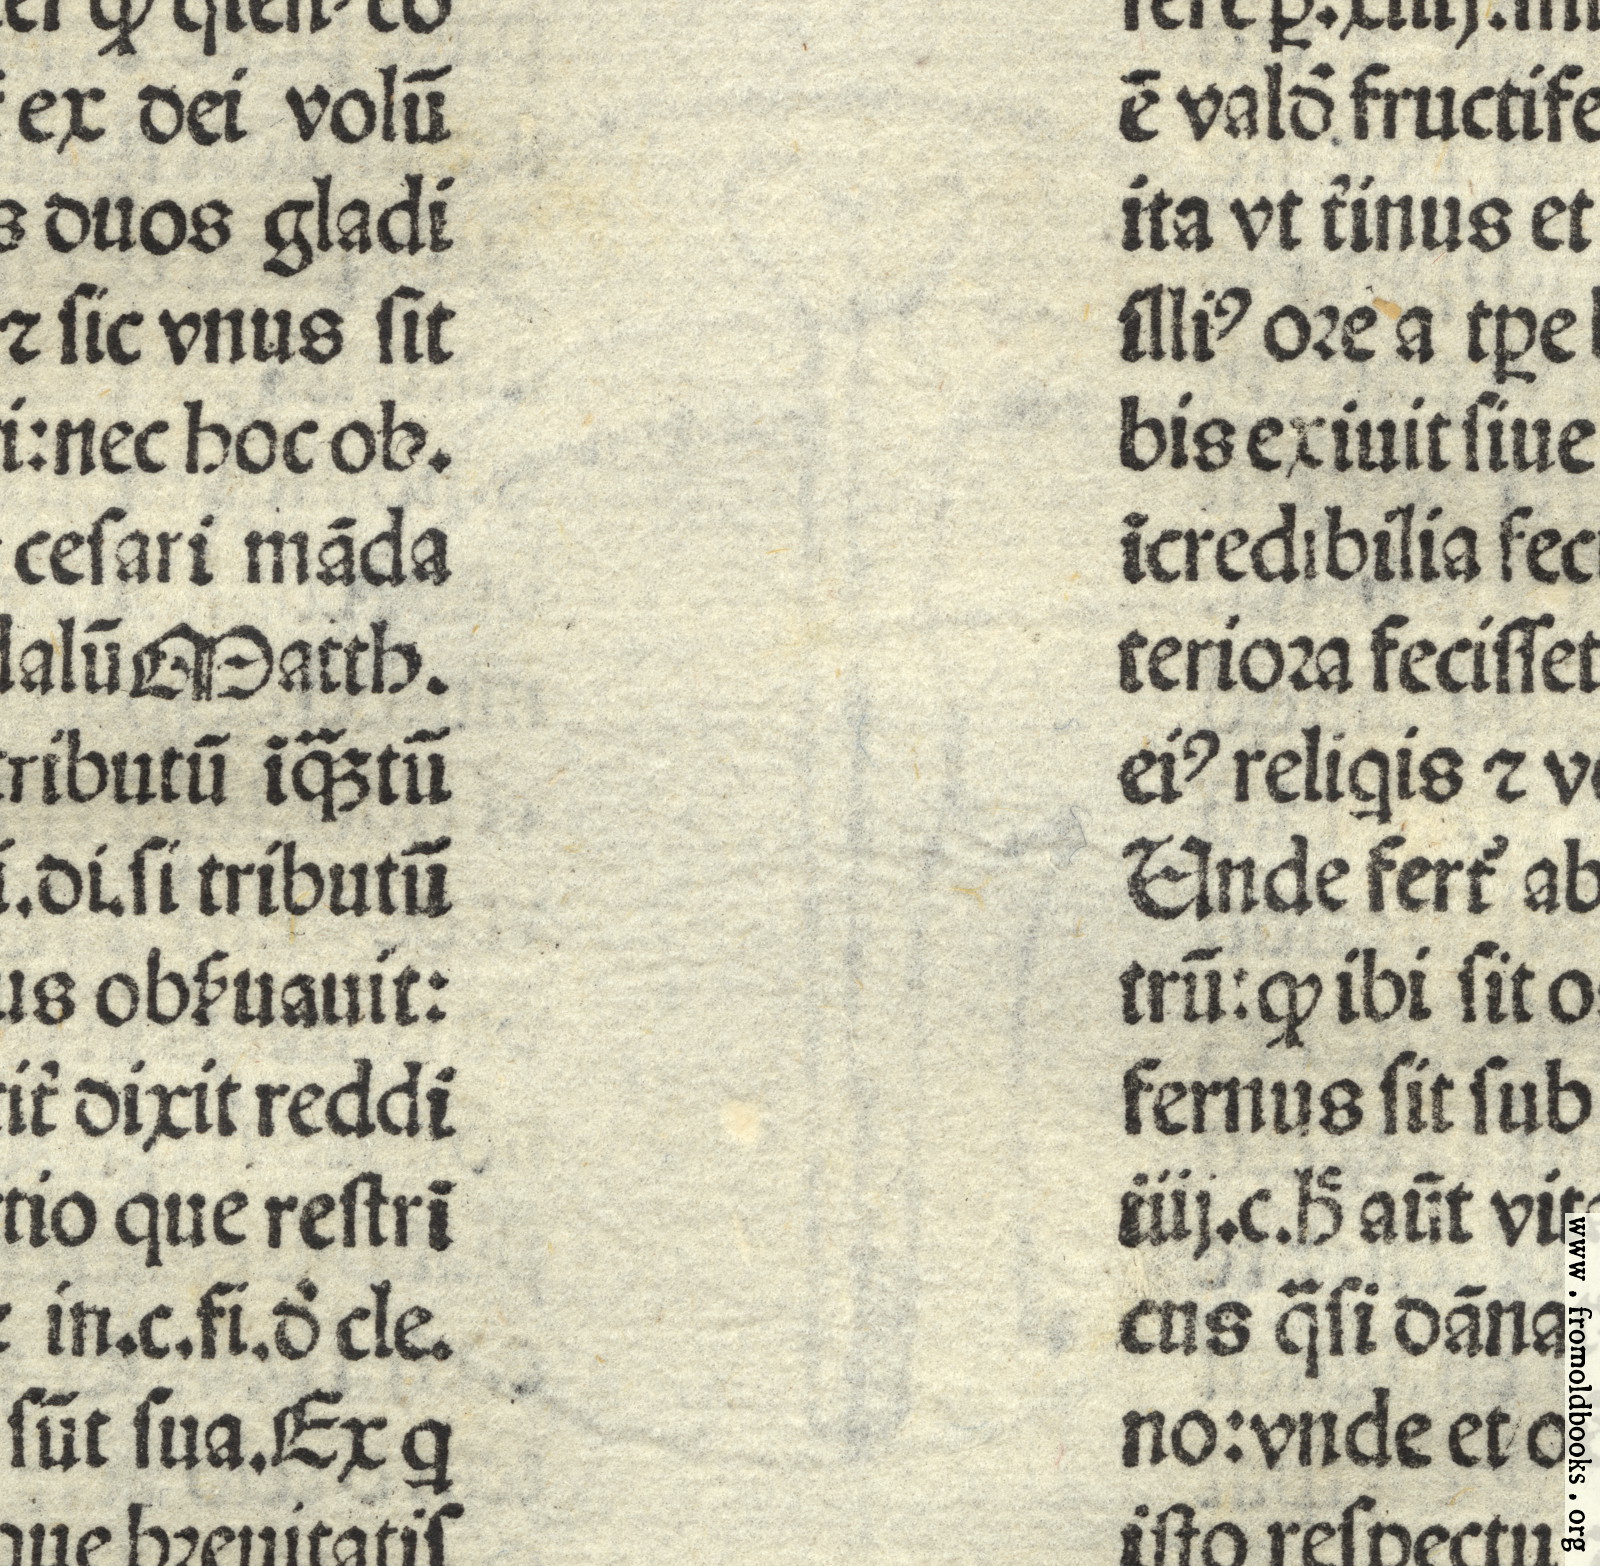 ex dei volū
s duos gladi
ꝛ ſic vnus ſit
i:nec hoc ob.
ceſari māda
dalū Matth.
tributū iq̄ꝫtū
.di.ſi tributū
us obẜuauit:
tit̉ dixit reddi
tio que reſtri
in.c.fi.d̉ cle.
ſūt ſua.Ex q
que bꝛeuitatiſ
ē vald̉ fructife
ita vt t̉inus et
illiꝰ oꝛe a tꝑe
bis exiuit ſiue
icredibilia feci
terioꝛa feciſſet
eiꝰ religis ⁊ ve
Unde fert̉ ab
trū:ꝙ ibi ſit os
fernus ſit ſub
iiij.c.h̉ aūt vit
cus q̄ſi dāna
no:vnde et o
iſto reſpectu
www.fromoldbooks.org